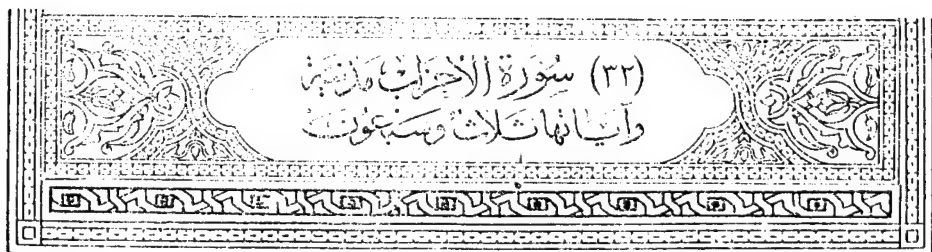 (٣٢) سُورَة الأحزَاب مَدنيَّة
وَآياتهَا ثلاث وَسَبعُون